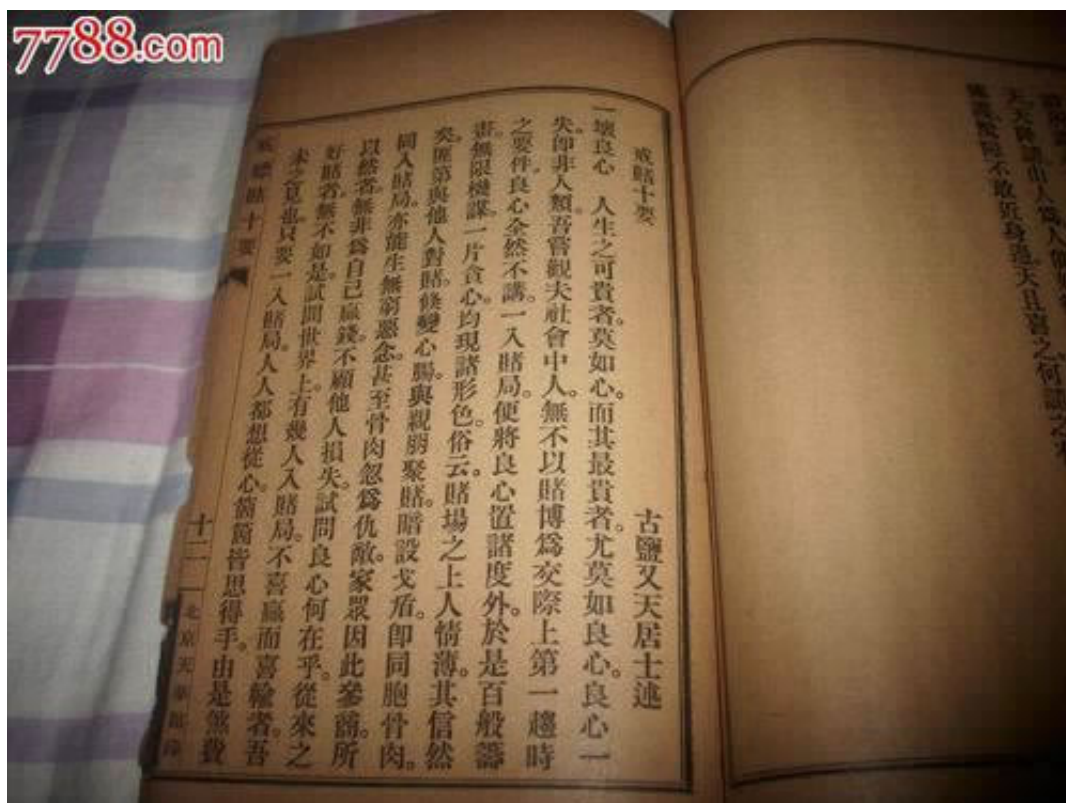 7788.com
天大降譴由人爲人
遠離不敢近身邊天且喜之何
戒賭十要
古鹽又天居士述
一壞良心　人生之可貴者。莫如心。而其最貴者。尤莫如良心。良心一
失。卽非人類。吾嘗觀夫社會中人。無不以賭博爲交際上第一趨時
之要件。良心全然不講。一入賭局。便將良心置諸度外。於是百般籌
畫。無限機謀。一片貪心。均現諸形色。俗云。賭場之上人情薄。其信然
矣。匪第與他人對賭。倏變心腸。與親朋聚賭。暗設戈盾。卽同胞骨肉。
同入賭局。亦能生無窮惡念。甚至骨肉忽爲仇敵。家眾因此參商。所
以然者。無非爲自己贏錢。不顧他人損失。試問良心何在乎。從來之
好賭者。無不如是。試問世界上。有幾人入賭局。不喜贏而喜輸者。吾
未之見也。只要一入賭局。人人都想從心。箇箇皆思得手。由是煞費
戒嫖賭十要
十二
北京天華館